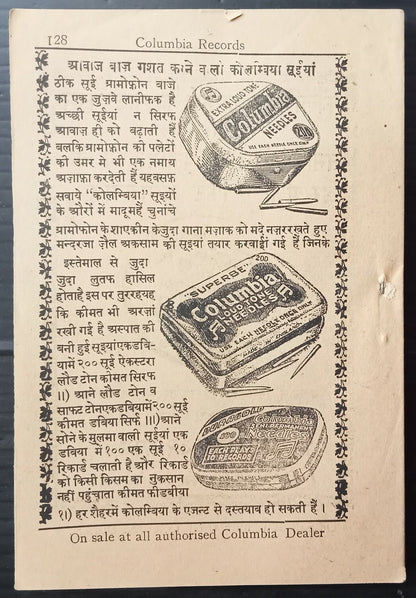 128
Columbia Records
आवाज़ बाज़ गशत करने वाली कोलम्बिया सूईयां
ठीक सूई ग्रामोफ़ोन बाजे
का एक जुज़वे लानीफक है
अच्छी सूईयां न सिरफ
आवाज़ ही को बढ़ाती हैं
बलकि ग्रामोफ़ोन की पलेटों
की उमर मे भी एक नमाय
अज़ाफ़ा करदेती हैं यहवसफ़
सवाये "कोलम्बिया" सूइयों
के औरों में मादूमहैं चुनांचे
EXTRA LOUD TONE
Columbia
NEEDLES
200
USE EACH NEEDLE ONCE ONLY
ग्रामोफ़ोन के शाएकीन केजुदा गाना मज़ाक को मद्दे नज़ररखते हुए
मन्दरजा ज़ैल अकसाम की सूइयां तयार करवाई गई हैं जिनके
इस्तेमाल से जुदा
जुदा लुतफ़ हासिल
होताहै इस पर तुररहयह
कि कीमत भी अरज़ां
रखी गई है अस्पात की
बनी हुई सूइयांएकडबि-
यामें २०० सूई ऐकस्टरा
लौड टोन कीमत सिरफ
॥) आने लौड टोन व
साफ्ट टोनएकडबियामें२०० सूई
कीमत डबिया सिर्फ ॥) आने
सोने के मूलमा वाली सूईयां एक
डबिया में १०० एक सूई १०
रिकार्ड चलाती है और रिकार्ड
को किसी किसम का नुकसान
नहीं पहुंचाता कीमत फीडबीया
"SUPERBE" 200
Columbia
LOUD TONE
NEEDLES
USE EACH NEEDLE ONCE ONLY
Columbia
Needles
EACH PLAYS
10 RECORDS
१।) हर शैहरमें कोलम्बिया के एजन्ट से दस्तयाब हो सकती हैं ।
On sale at all authorised Columbia Dealer